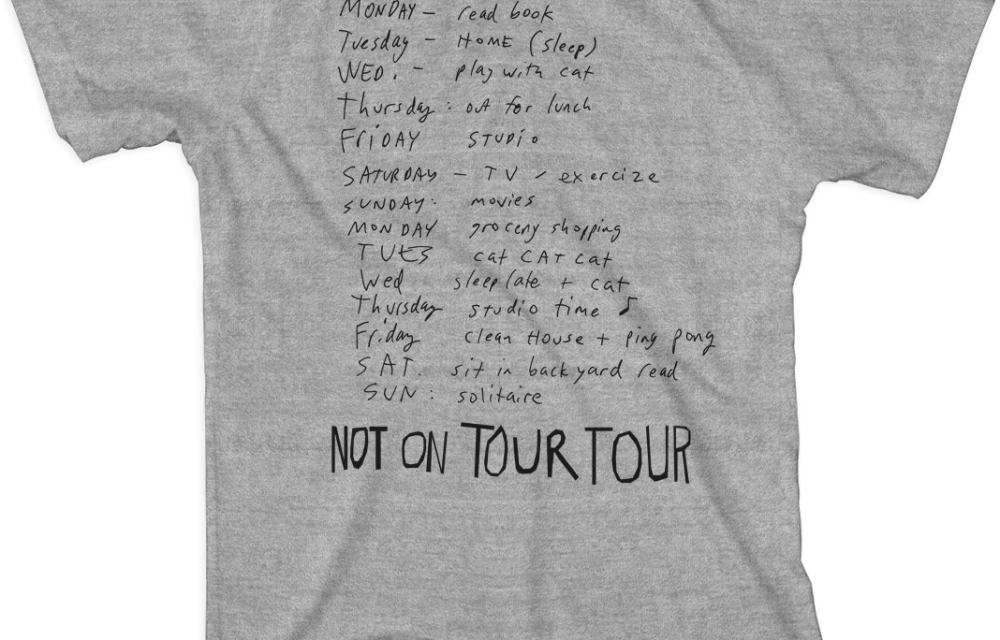 MONDAY – read book
Tuesday – HOME (sleep)
WED. – play with cat
Thursday: out for lunch
FRiDAY STUDiO
SATURDAY – TV / exercize
SUNDAY: movies
MONDAY grocery shopping
TUES cat CAT cat
Wed sleep late + cat
Thursday studio time ♪
Friday clean House + ping pong
SAT. sit in backyard read
SUN: solitaire
NOT ON TOUR TOUR